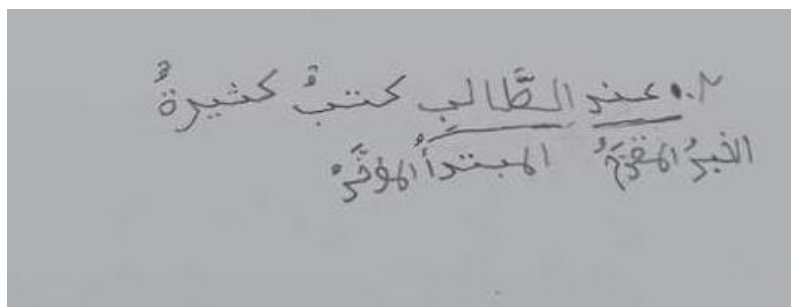 ٢. عند الطَّالبِ كتبٌ كثيرةٌ
الخبرُ المقدمُ المبتدأُ المؤخَّرُ